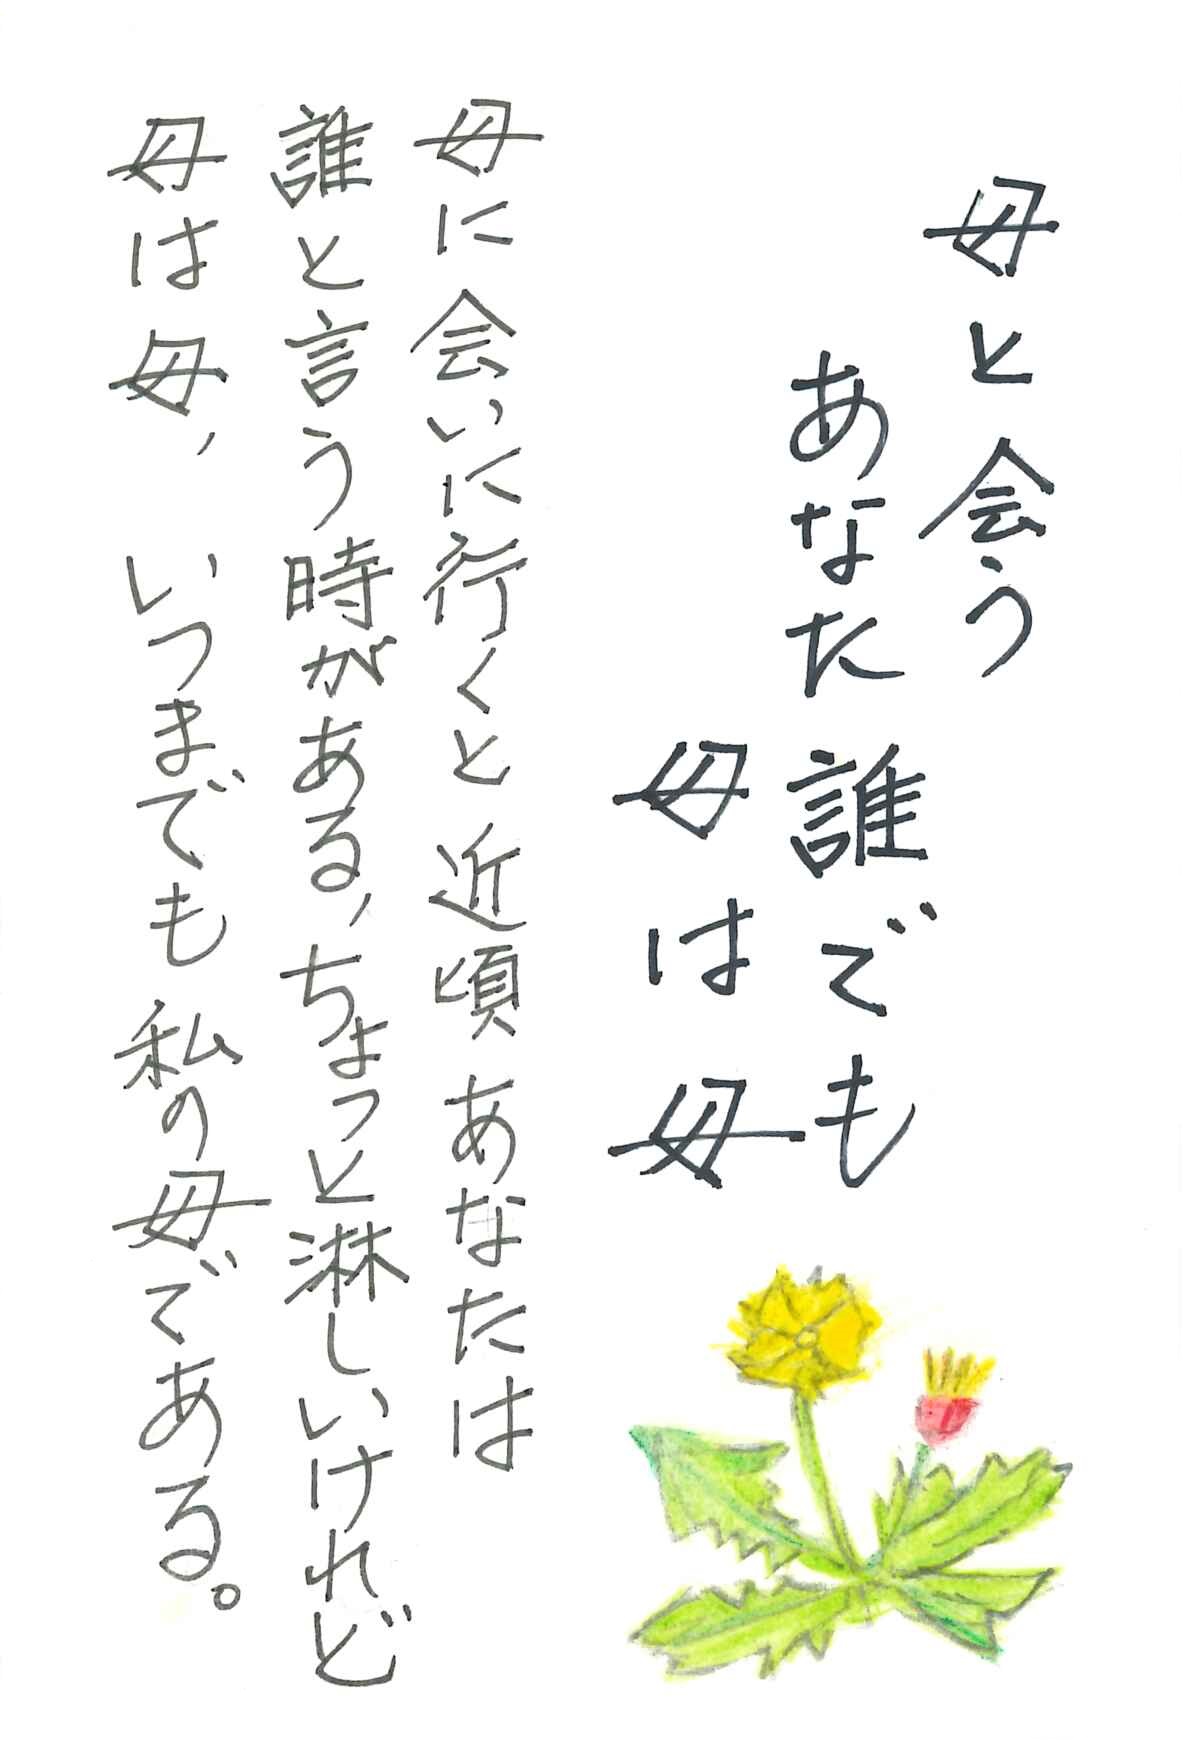 母と会う
あなた誰でも
母は母
母に会いに行くと近頃あなたは
誰と言う時がある、ちょっと淋しいけれど
母は母、いつまでも私の母である。